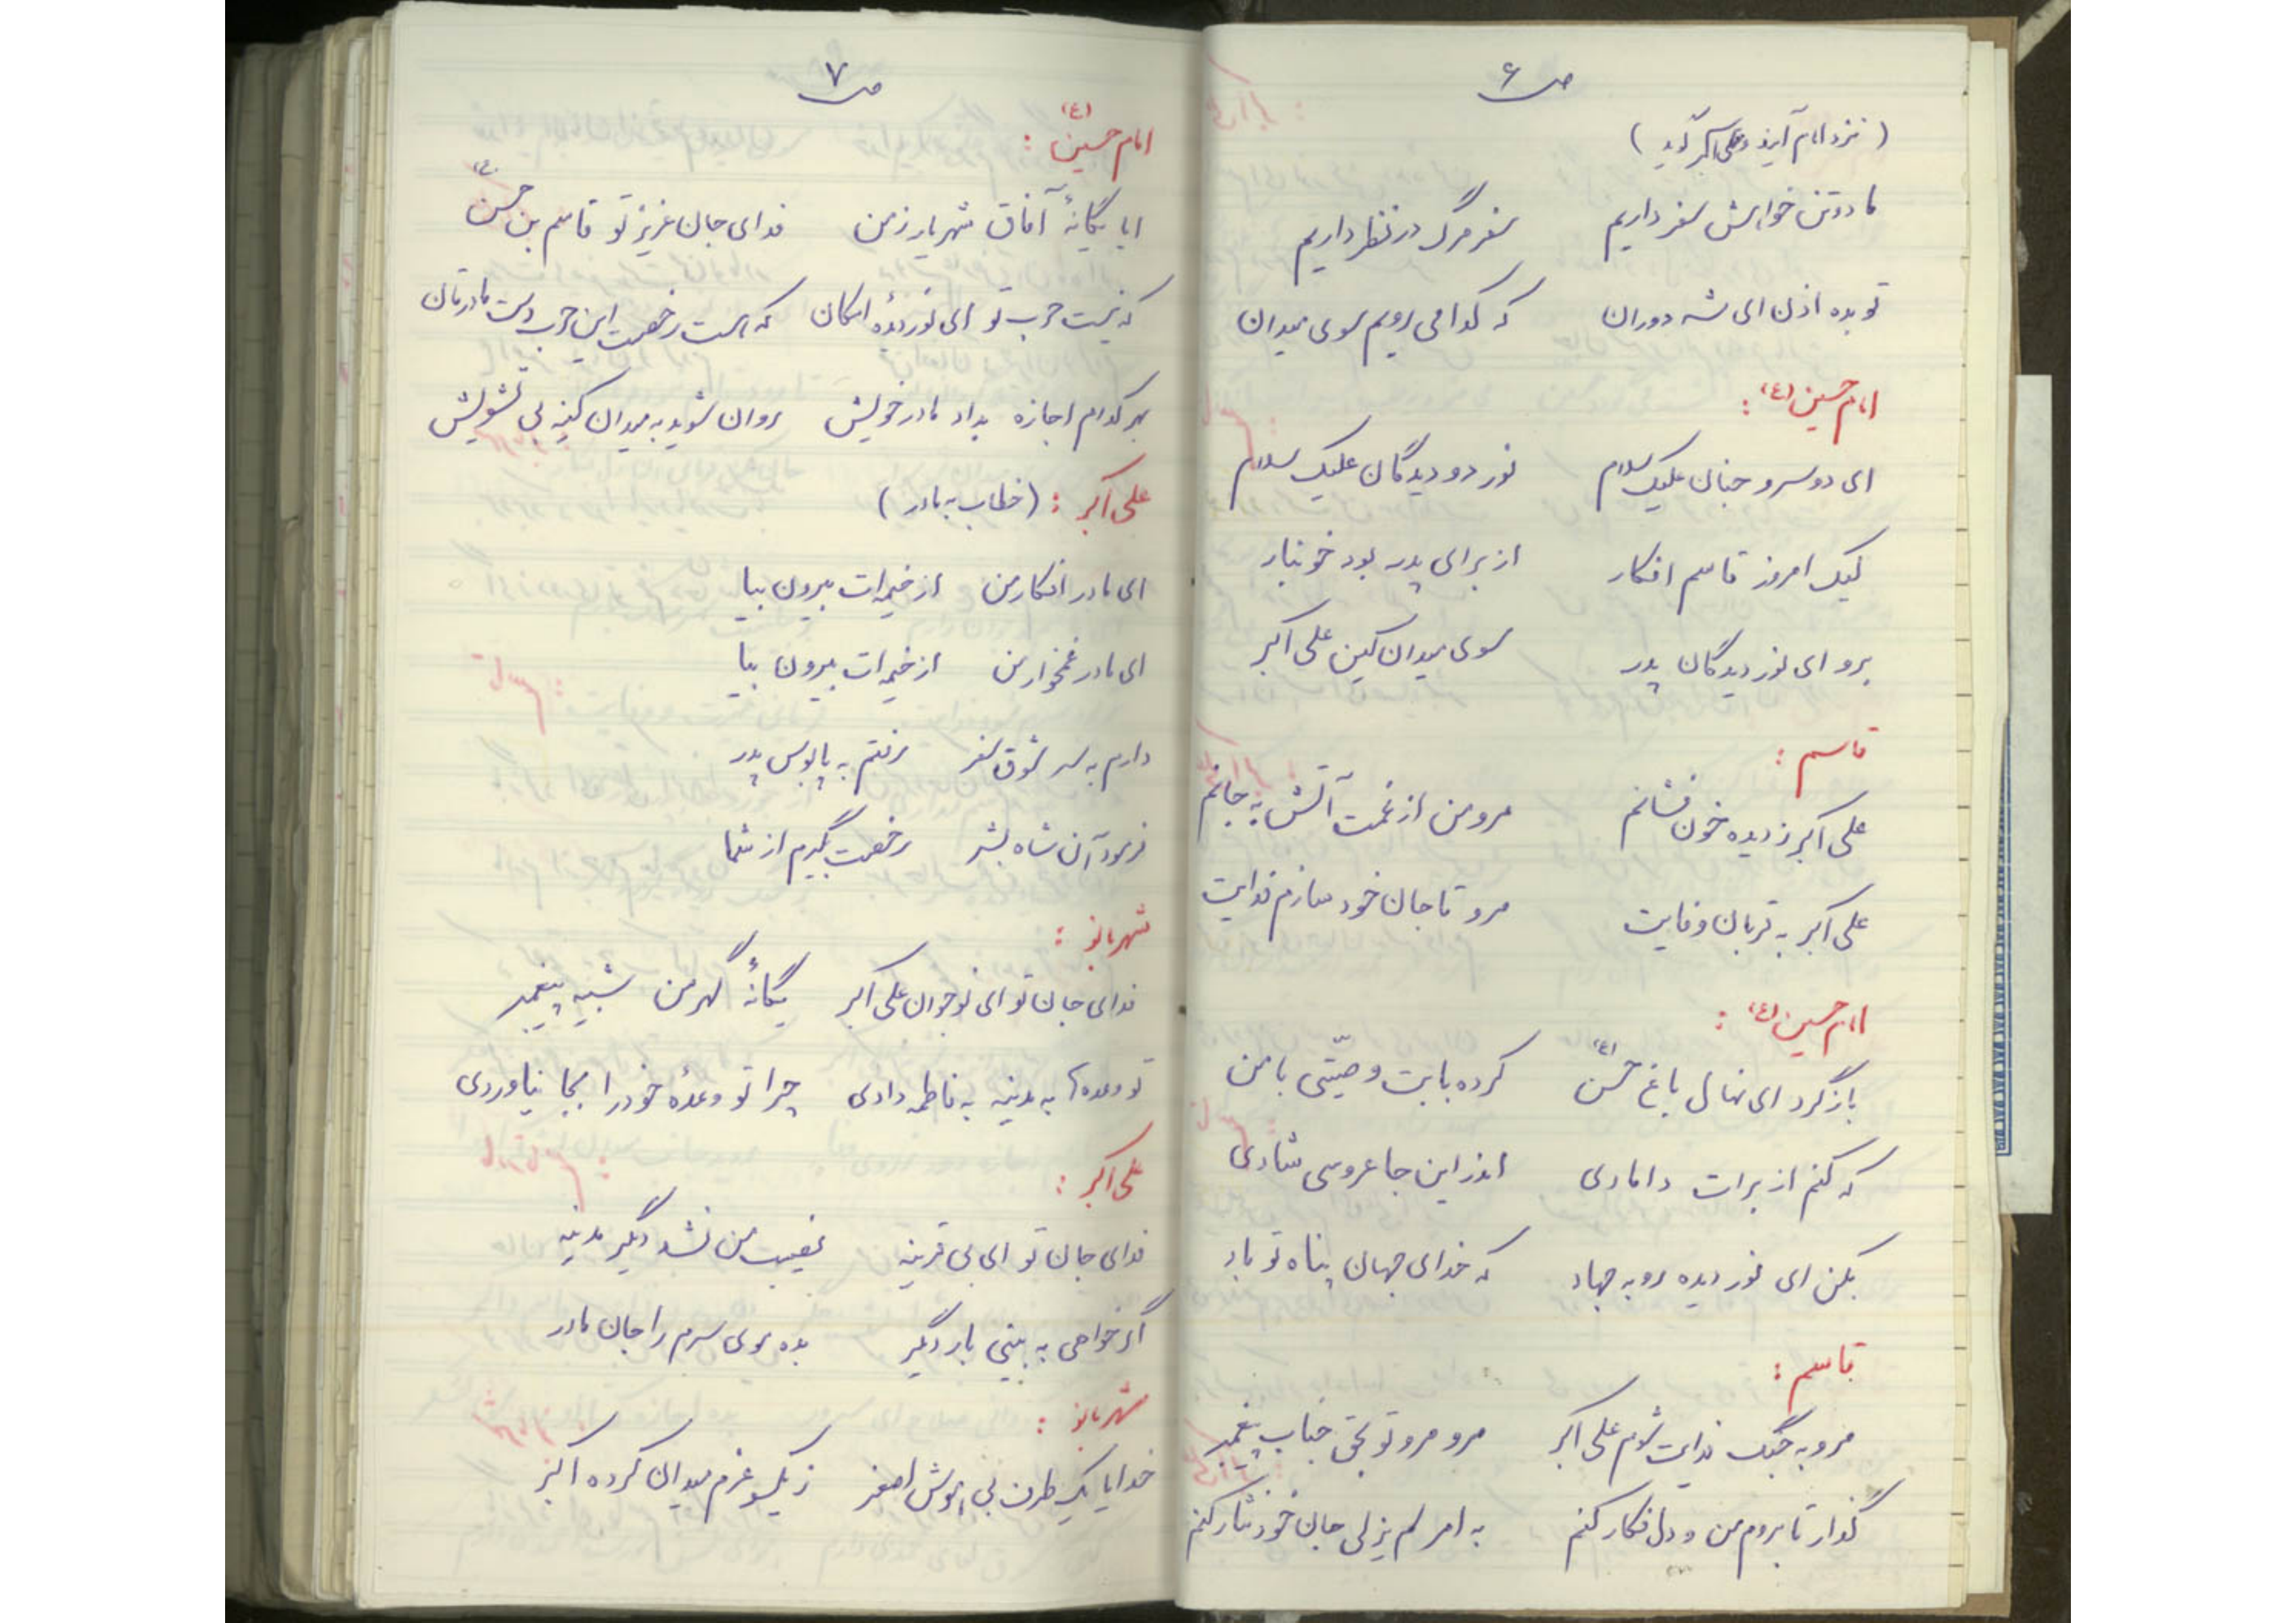 ص ۶
(نزد امام آیند و علی اکبر گوید)
ما دو تن خواهش سفر داریم سفر مرگ در نظر داریم
تو بده اذن ای شه دوران که کدامی رویم سوی میدان
امام حسین (ع) :
ای دو سرو جنان علیک سلام نور دو دیدگان علیک سلام
لیک امروز قاسم افکار از برای پدر بود خونبار
برو ای نور دیدگان پدر سوی میدان کین علی اکبر
قاسم :
علی اکبر ز دیده خون فشانم مرو من از غمت آتش به جانم
علی اکبر به قربان وفایت مرو تا جان خود سازم فدایت
امام حسین (ع) :
بازگرد ای نهال باغ حسن (ع) کرده بابت وصیّتی با من
که کنم از برات دامادی اندر این جا عروسی شادی
بکن ای نور دیده رو به جهاد که خدای جهان پناه تو باد
قاسم :
مرو به جنگ فدایت شوم علی اکبر مرو مرو تو بحق جناب پیغمبر
گذار تا بروم من و دل فکار کنم به امر لم یزلی جان خود نثار کنم
ص ۷
امام حسین (ع) :
ایا یگانهٔ آفاق شهریار زمن فدای جان عزیز تو قاسم بن حسن (ع)
که نیست حرب تو ای نور دیدهٔ امکان که هست رخصت این حرب دست مادرتان
بهر کدام اجازه بداد مادر خویش روان شوید به میدان کینه بی تشویش
علی اکبر : (خطاب به مادر)
ای مادر افکار من از خیمه ات بیرون بیا
ای مادر غمخوار من از خیمه ات بیرون بیا
دارم به سر شوق سفر رفتم به پابوس پدر
فرمود آن شاه بشر رخصت بگیرم از شما
شهربانو :
فدای جان تو ای نوجوان علی اکبر یگانهٔ گهر من شبیه پیغمبر
تو وعده ها به مدینه به فاطمه دادی چرا تو وعدهٔ خود را بجا نیاوردی
علی اکبر :
فدای جان تو ای بی قرینه نصیب من نشد دیگر مدینه
اگر خواهی به بینی بار دیگر بده موی سرم را جان مادر
شهربانو :
خدایا یک طرف بی هوش اصغر ز یکسو عزم میدان کرده اکبر